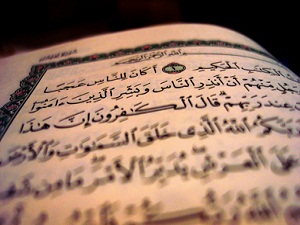 بِسْمِ اللَّهِ الرَّحْمَٰنِ الرَّحِيمِ
الْكِتَٰبِ الْحَكِيمِ أَكَانَ لِلنَّاسِ عَجَبًا
رَجُلٍ مِّنْهُمْ أَنْ أَنذِرِ النَّاسَ وَبَشِّرِ الَّذِينَ ءَامَنُوا
عِندَ رَبِّهِمْ قَالَ الْكَٰفِرُونَ إِنَّ هَٰذَا
رَبَّكُمُ اللَّهُ الَّذِي خَلَقَ السَّمَٰوَٰتِ وَالْأَرْضَ
عَلَى الْعَرْشِ يُدَبِّرُ الْأَمْرَ مَا مِن
اللَّهُ رَبُّكُمْ